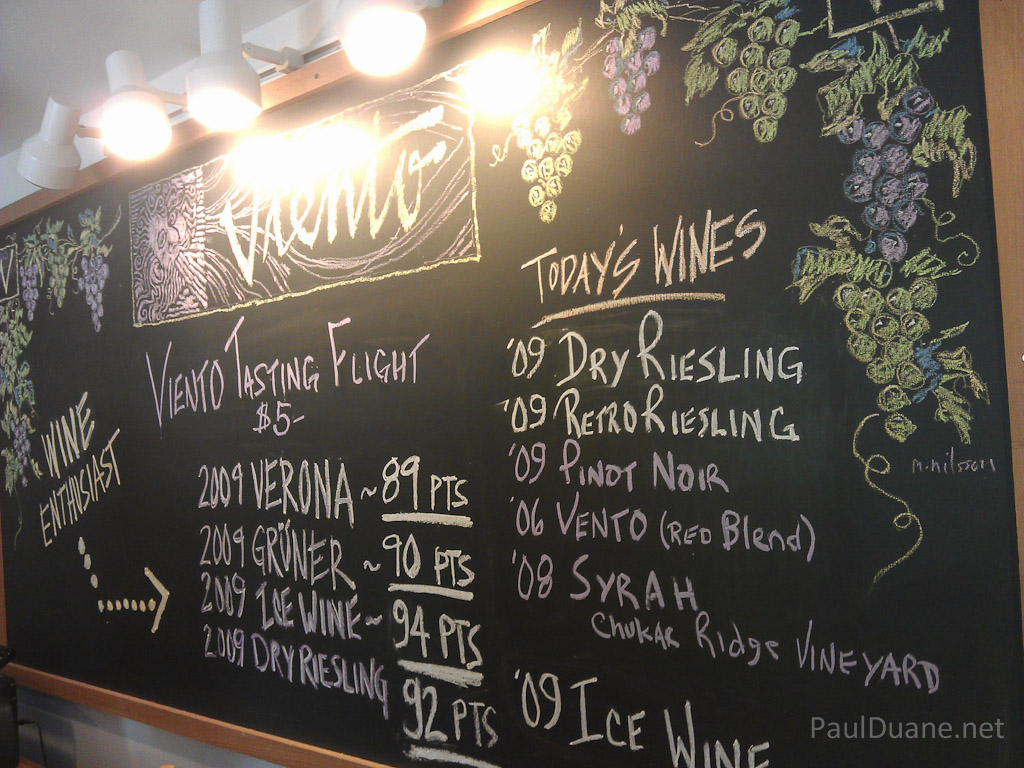 Viento
V
VIENTO TASTING FLIGHT
$5-
WINE
ENTHUSIAST
2009 VERONA ~ 89 PTS
2009 GRÜNER ~ 90 PTS
2009 ICE WINE ~ 94 PTS
2009 DRY RIESLING 92 PTS
TODAY'S WINES
'09 DRY RIESLING
'09 RETRO RIESLING
'09 PINOT NOIR
'06 VENTO (RED Blend)
'08 SYRAH
CHUKAR Ridge VINEYARD
'09 ICE WINE
m.nilsson
PaulDuane.net